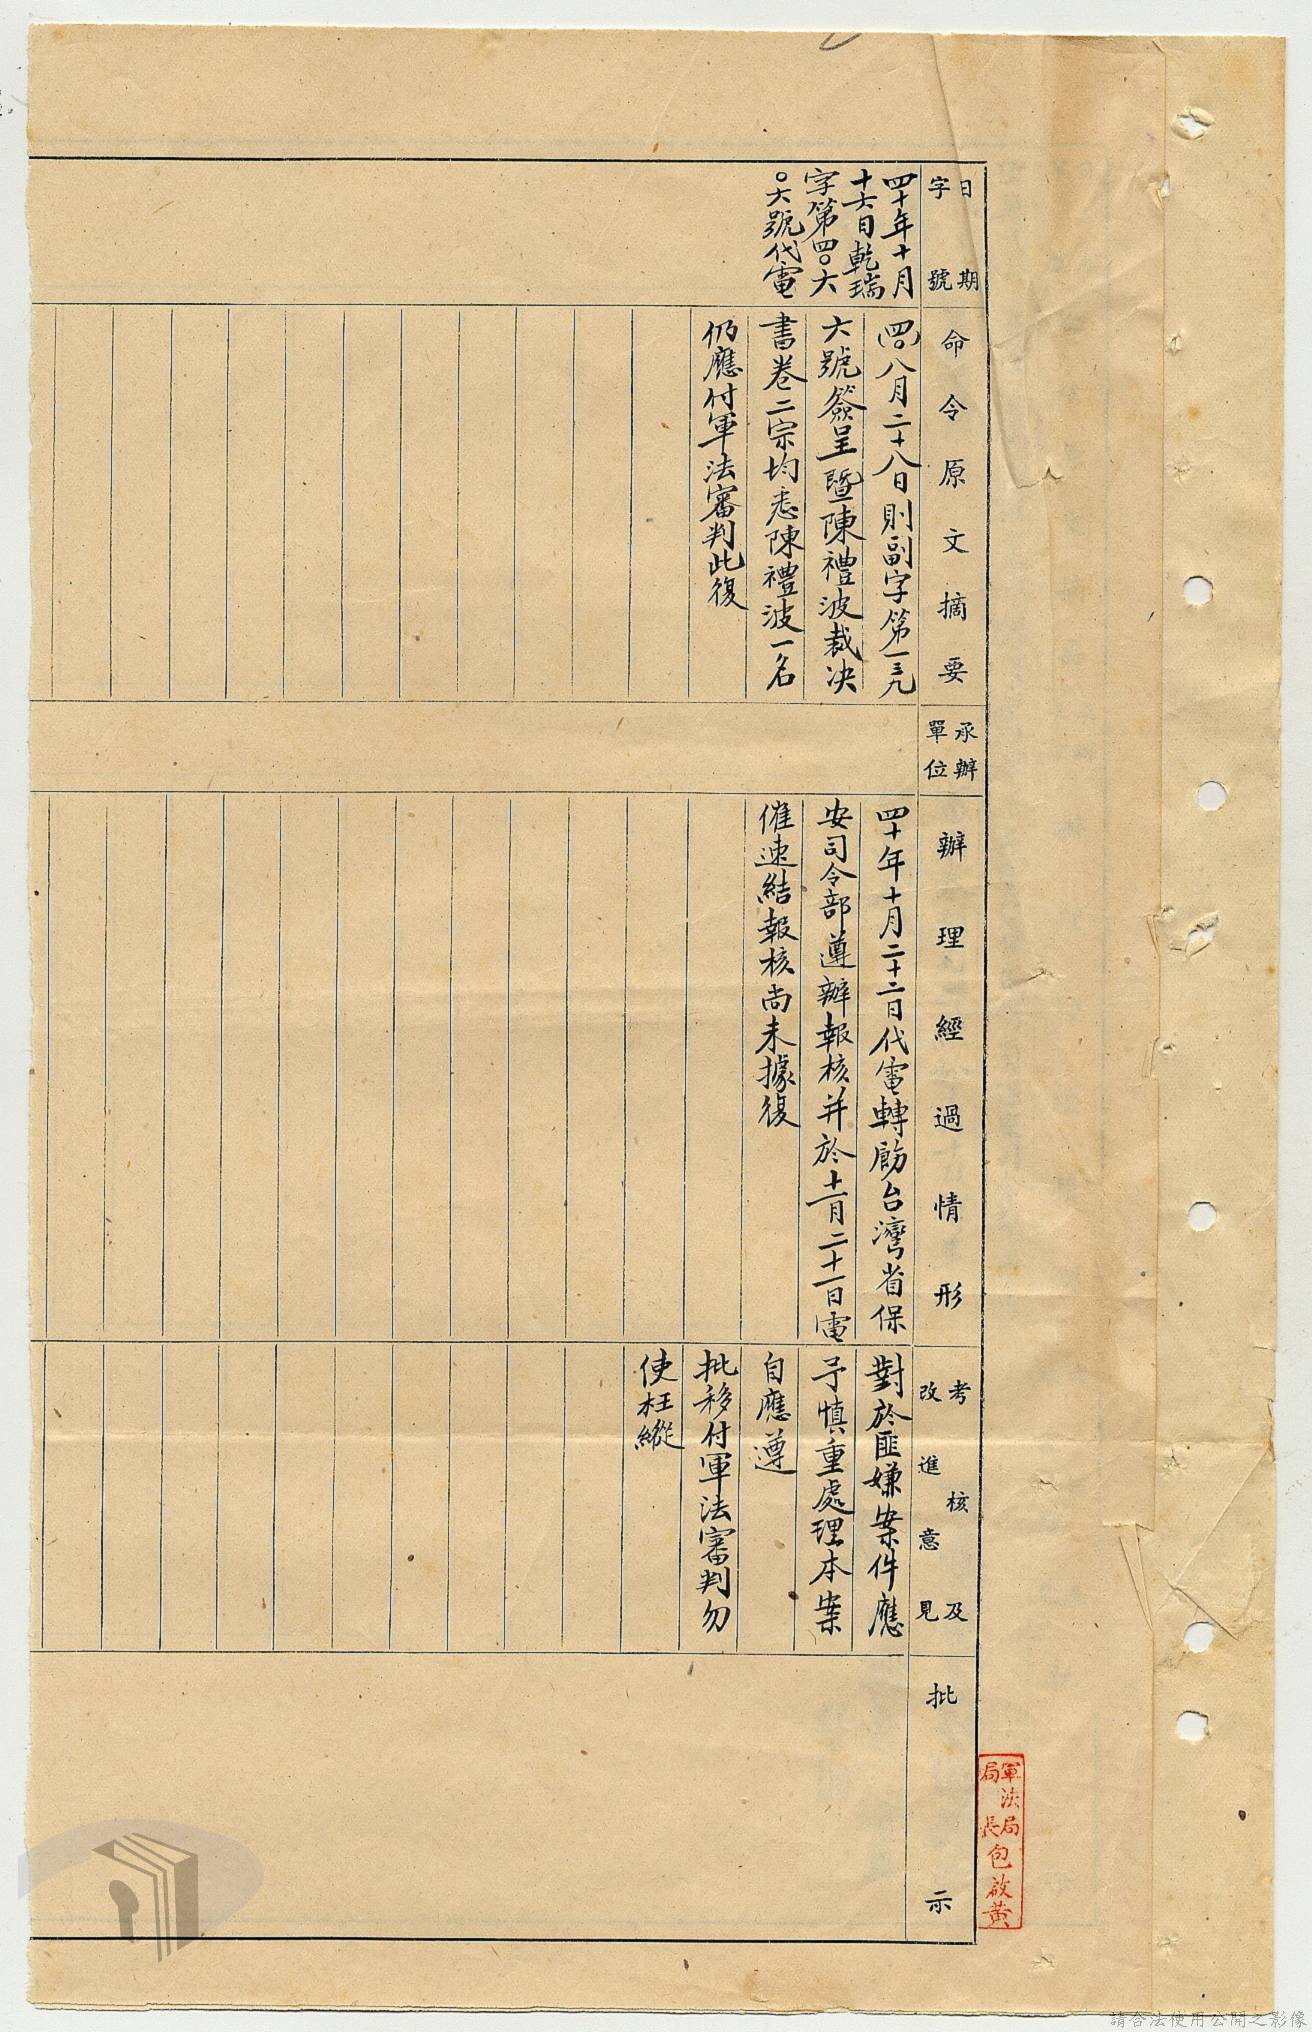 日期
字號
四十年十月
十六日乾瑞
字第四〇六
〇六號代電
命令原文摘要
(四)八月二十八日則副字第一三九
六號簽呈暨陳禮波裁決
書卷二宗均悉陳禮波一名
仍應付軍法審判此復
承辦
單位
辦理經過情形
四十年十月二十二日代電轉飭台灣省保
安司令部遵辦報核并於十一月二十一日電
催速結報核尚未據復
考核及
改進意見
對於匪嫌案件應
予慎重處理本案
自應遵
批移付軍法審判勿
使枉縱
批示
軍法局
局長包啟黃
請合法使用公開之影像